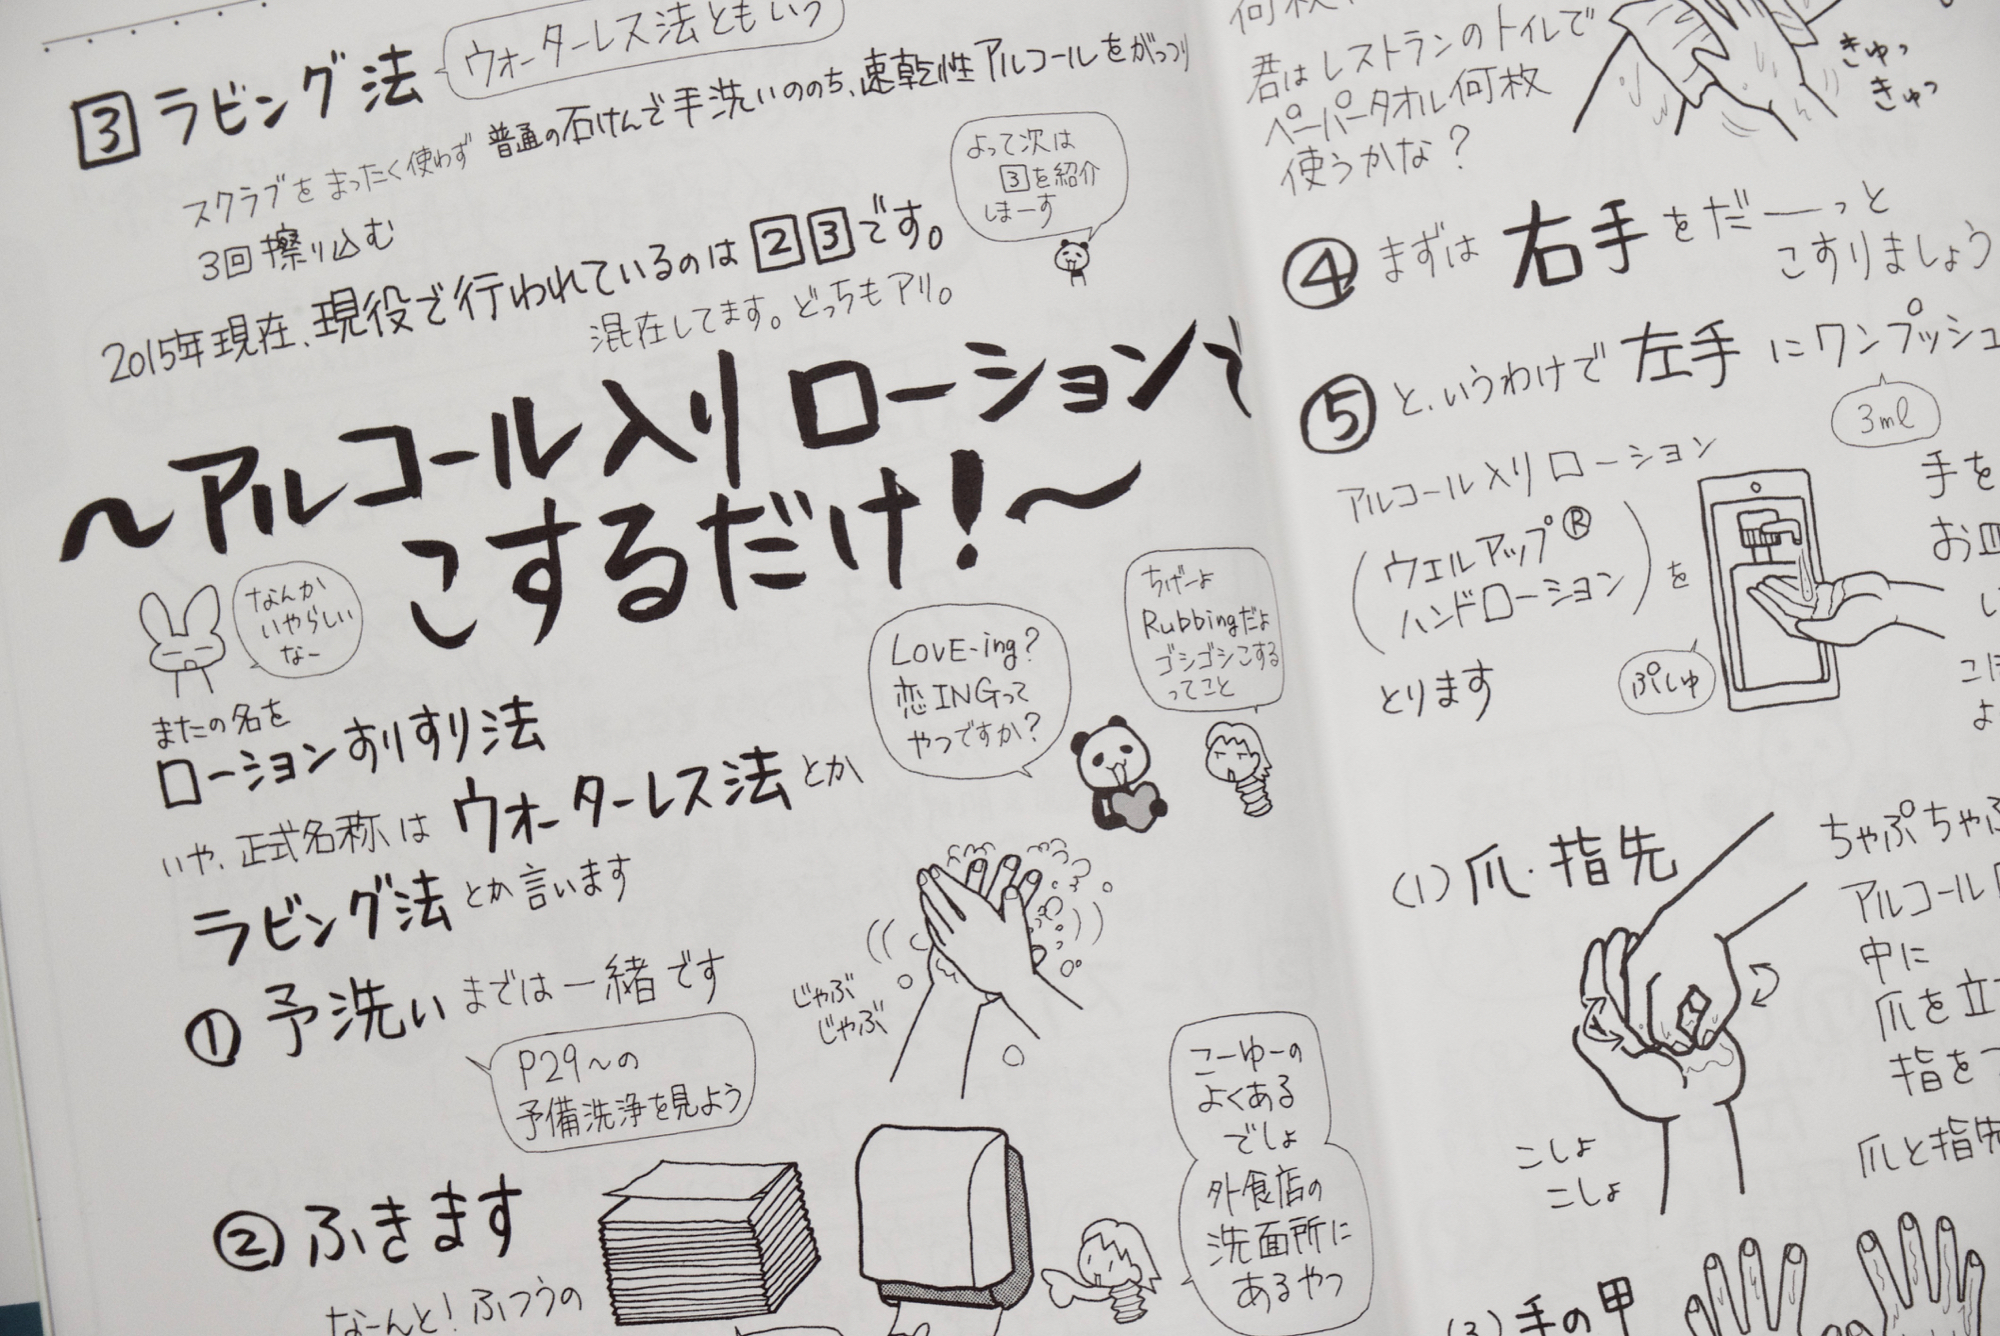 3 ラビング法
ウォーターレス法ともいう
スクラブをまったく使わず 普通の石けんで手洗いののち、速乾性アルコールをがっつり
3回擦り込む
2015年現在、現役で行われているのは23です。
混在してます。どっちもアリ。
よって次は
3を紹介
しまーす
〜アルコール入りローションで
こするだけ!〜
なんか
いやらしい
なー
またの名を
ローションすりすり法
いや、正式名称は ウォーターレス法とか
ラビング法とか言います
LOVE-ing?
恋INGって
やつですか?
ちげーよ
Rubbingだよ
ゴシゴシこする
ってこと
① 予洗いまでは一緒です
P29〜の
予備洗浄を見よう
じゃぶ
じゃぶ
② ふきます
なーんと!ふつうの
こーゆーの
よくある
でしょ
外食店の
洗面所に
あるやつ
君はレストランのトイレで
ペーパータオル何枚
使うかな?
きゅっ
きゅっ
④ まずは右手をだーーっと
こすりましょう
⑤ と、いうわけで左手にワンプッシュ
3ml
アルコール入りローション
(ウェルアップ®
ハンドローション)を
とります
ぷしゅ
手を
(1)爪・指先
ちゃぷちゃぷ
アルコール
中に
爪を立
指を
爪と指先
こしょ
こしょ
(3)手の甲